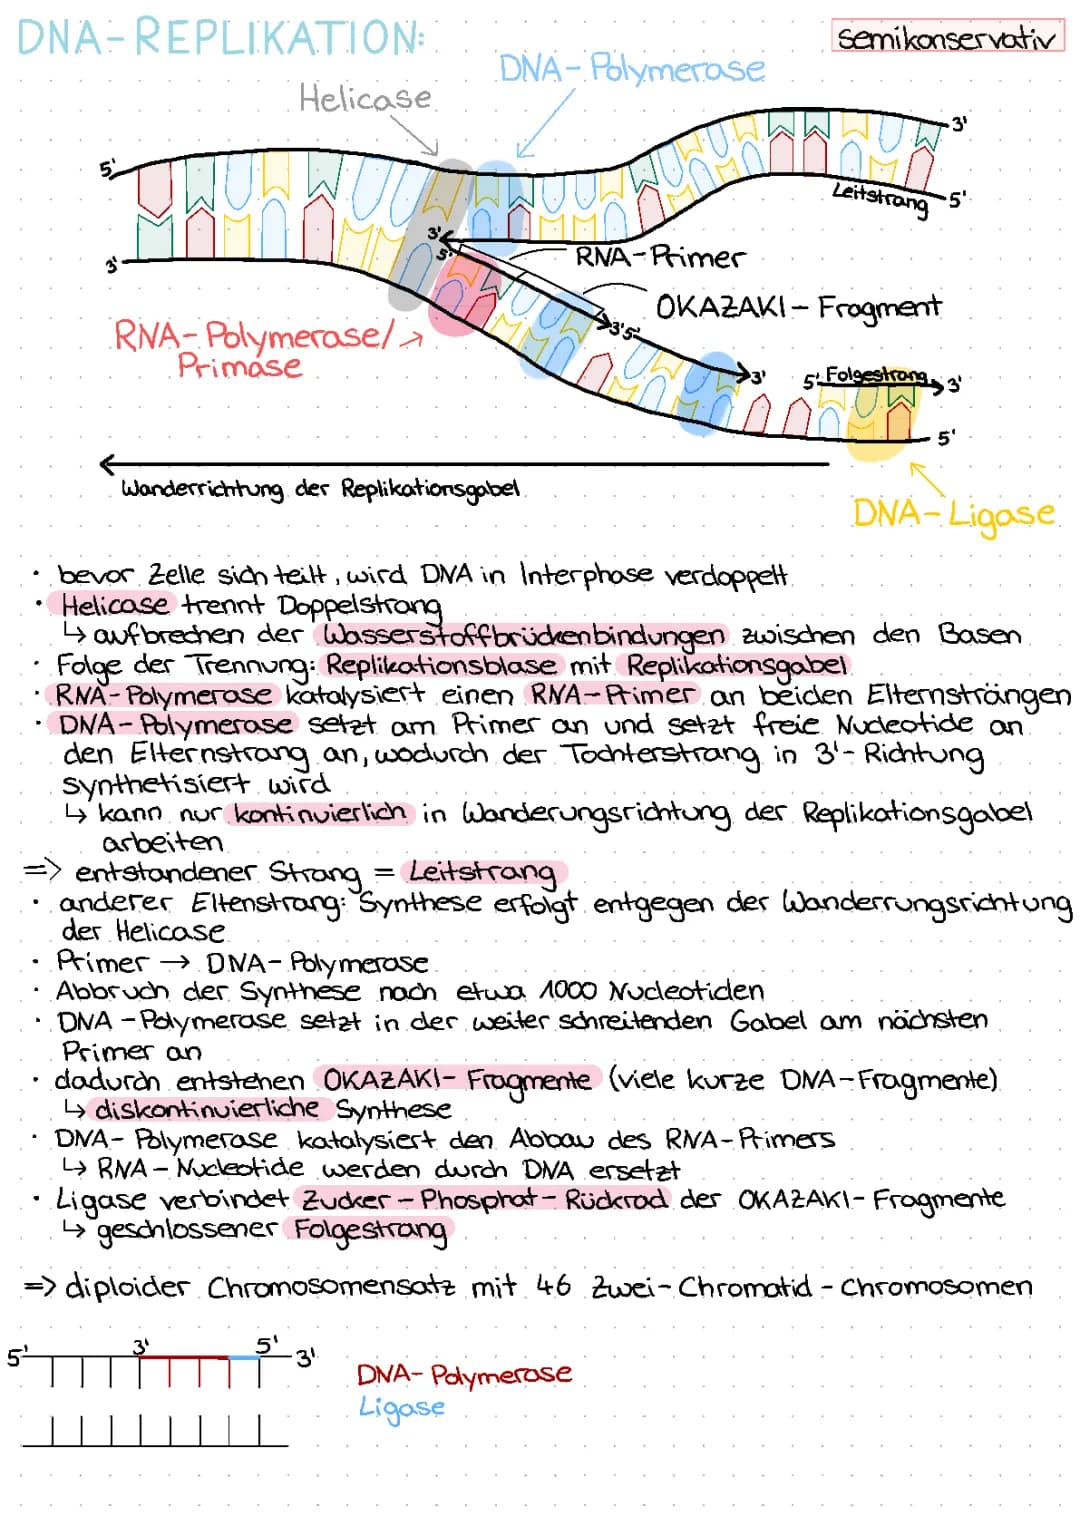 DNA-REPLIKATION:
semikonservativ
DNA-Polymerase
Helicase
3'
5'
Leitstrang
5'
3'
3'
5'
RNA-Primer
OKAZAKI-Fragment
RNA-Polymerase/
Primase
3'5'
3'
5' Folgestrang 3'
5'
Wanderrichtung der Replikationsgabel
DNA-Ligase
• bevor Zelle sich teilt, wird DNA in Interphase verdoppelt
• Helicase trennt Doppelstrang
↳ aufbrechen der Wasserstoffbrückenbindungen zwischen den Basen
• Folge der Trennung: Replikationsblase mit Replikationsgabel
• RNA-Polymerase katalysiert einen RNA-Primer an beiden Elternsträngen
• DNA-Polymerase setzt am Primer an und setzt freie Nucleotide an
den Elternstrang an, wodurch der Tochterstrang in 3'-Richtung
synthetisiert wird
↳ kann nur kontinuierlich in Wanderungsrichtung der Replikationsgabel
arbeiten
=> entstandener Strang = Leitstrang
• anderer Eltenstrang: Synthese erfolgt entgegen der Wanderrungsrichtung
der Helicase
• Primer → DNA-Polymerase
• Abbruch der Synthese nach etwa 1000 Nucleotiden
• DNA-Polymerase setzt in der weiter schreitenden Gabel am nächsten
Primer an
• dadurch entstehen OKAZAKI-Fragmente (viele kurze DNA-Fragmente)
↳ diskontinuierliche Synthese
• DNA-Polymerase katalysiert den Abbau des RNA-Primers
↳ RNA-Nucleotide werden durch DNA ersetzt
• Ligase verbindet Zucker-Phosphat-Rückrad der OKAZAKI-Fragmente
↳ geschlossener Folgestrang
=> diploider Chromosomensatz mit 46 Zwei-Chromatid-Chromosomen
5' 3' 5' 3'
DNA-Polymerase
Ligase